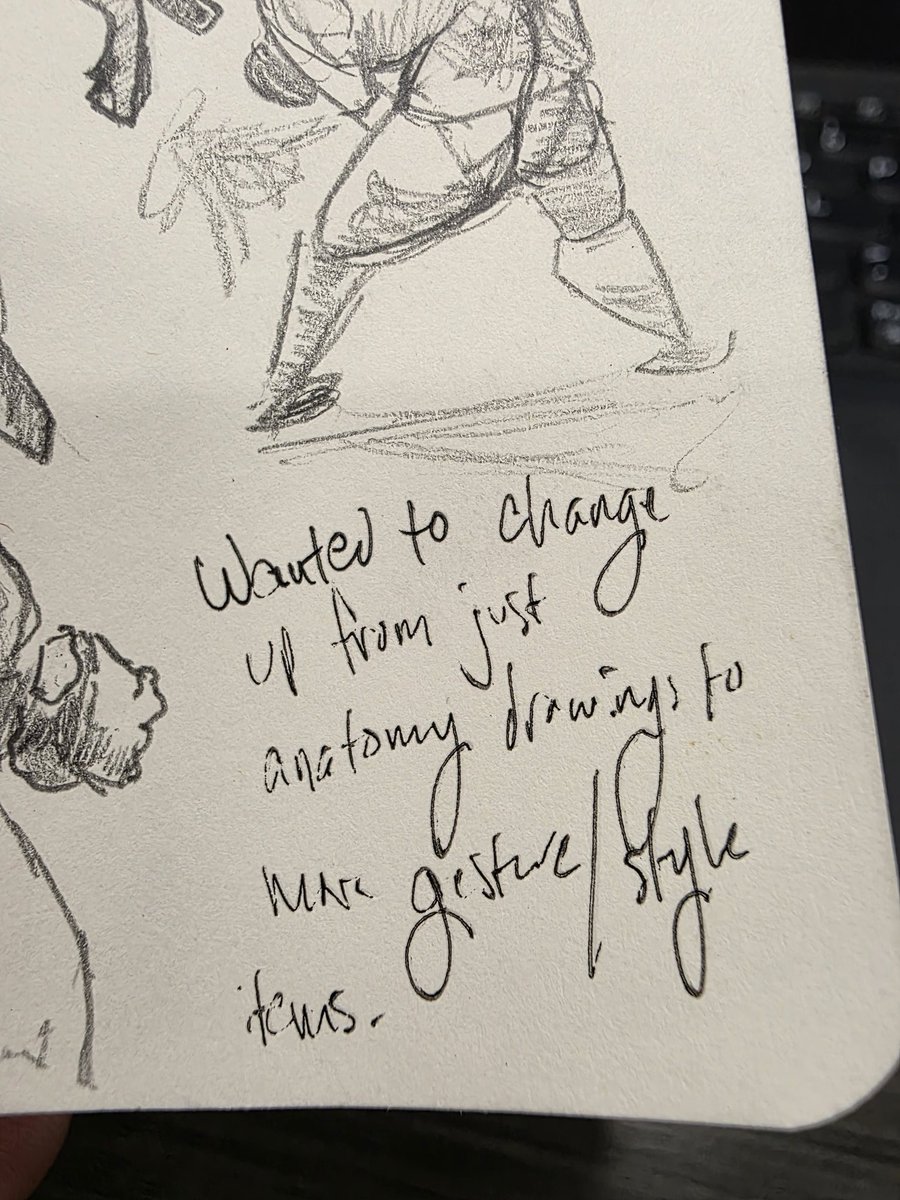 Wanted to change
up from just
anatomy drawings to
more gesture/style
items.